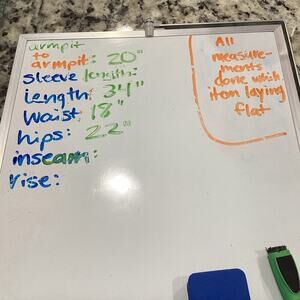 armpit
to
armpit: 20"
sleeve length:
length: 34"
waist 18"
hips: 22"
inseam:
rise:
All
measure-
ments
done which
item laying
flat